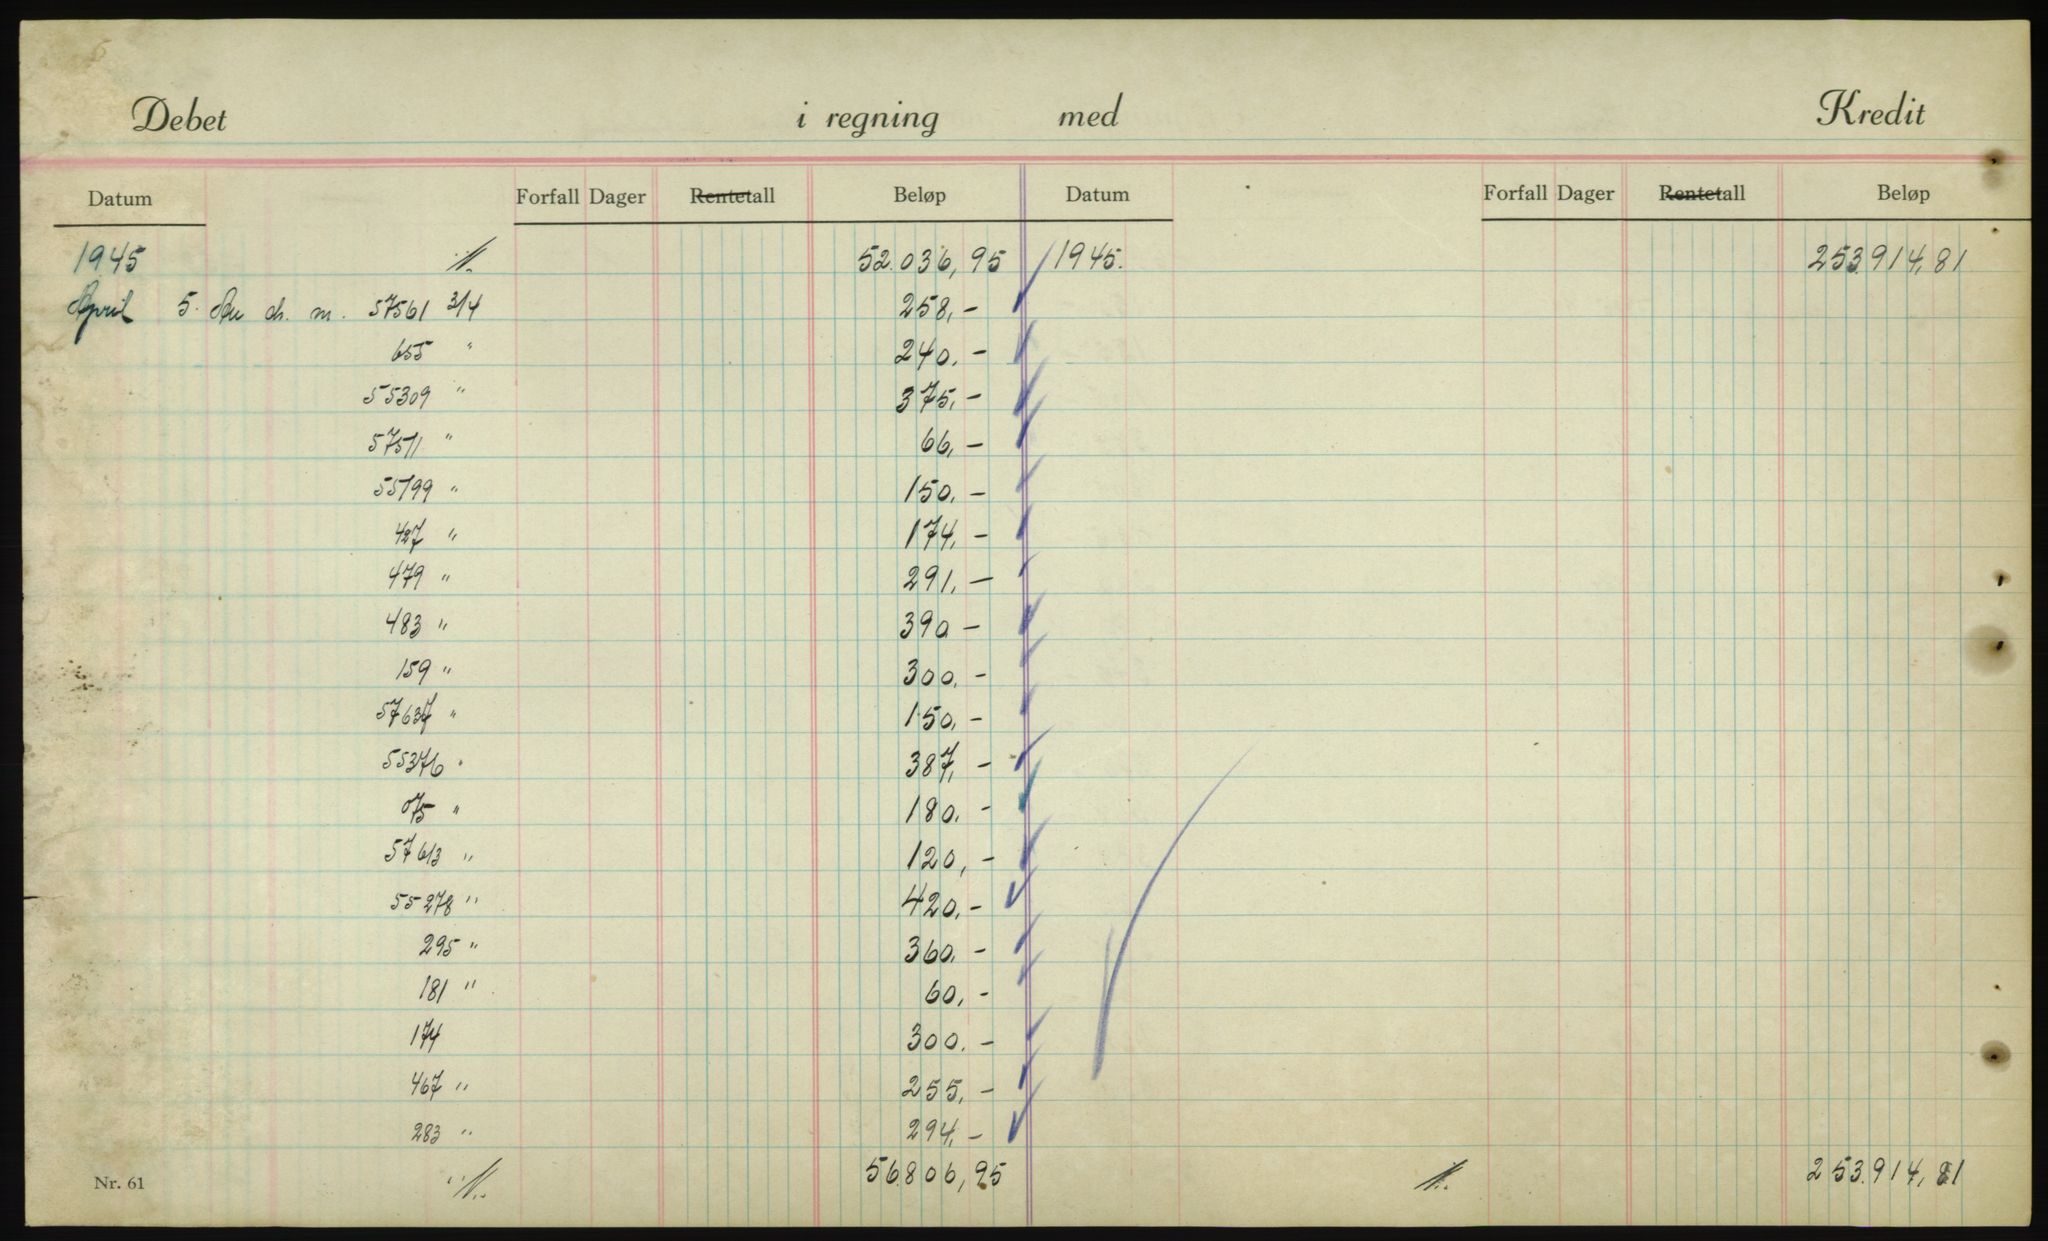 Debet i regning med Kredit
Datum Forfall Dager Rentetall Beløp Datum Forfall Dager Rentetall Beløp
1945 52.036,95 1945. 253.914,81
April 5. ch. m. 57561 3/4 258,-
655 " 240.-
55309 " 375,-
57511 " 66,-
55199 " 150.-
427 " 174,-
479 " 291,-
483 " 390 -
159 " 300.-
57637 " 150,-
55376 " 387,-
075 " 180.-
57613 " 120,-
55278 " 420,-
295 " 360,-
181 " 60,-
174 300.-
467 " 255,-
283 " 294,-
Nr. 61 56.806,95 253.914,81